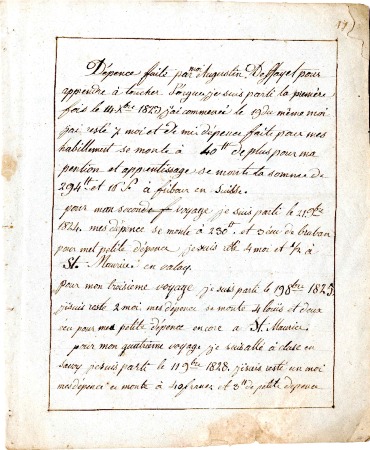 Dépence faite par moi Augustin Deffayet pour
apprendre à toucher l'orgue je suis parti la première
fois le 14 Xbre 1823 j'ai commencé le 19 du même moi
j'ai resté 7 moi et de mi dépence faite pour mes
habillement se monte à 40 tt de plus pour ma
pention et apprentissage se monte la somme de
294 tt et 18 s. à fribour en Suisse.
pour mon second voyage je suis parti le 21 9bre
1824. mes dépence se monte à 230 tt et 3 écu de braban
pour mes petite dépence je suis resté 4 moi et 1/2 à
St. Maurice en valay.
pour mon troisième voyage je suis parti le 19 8bre 1825.
je suis resté 2 moi. mes dépence se monte 4 louis et deux
écu pour mes petite dépence encore a St. Maurice.
pour mon quatrième voyage je suis allé à cluse en
Savoy je suis parti le 11 9bre 1828. je suis resté un moi
mes dépence se monte à 40 francs et 3 tt de petite dépence